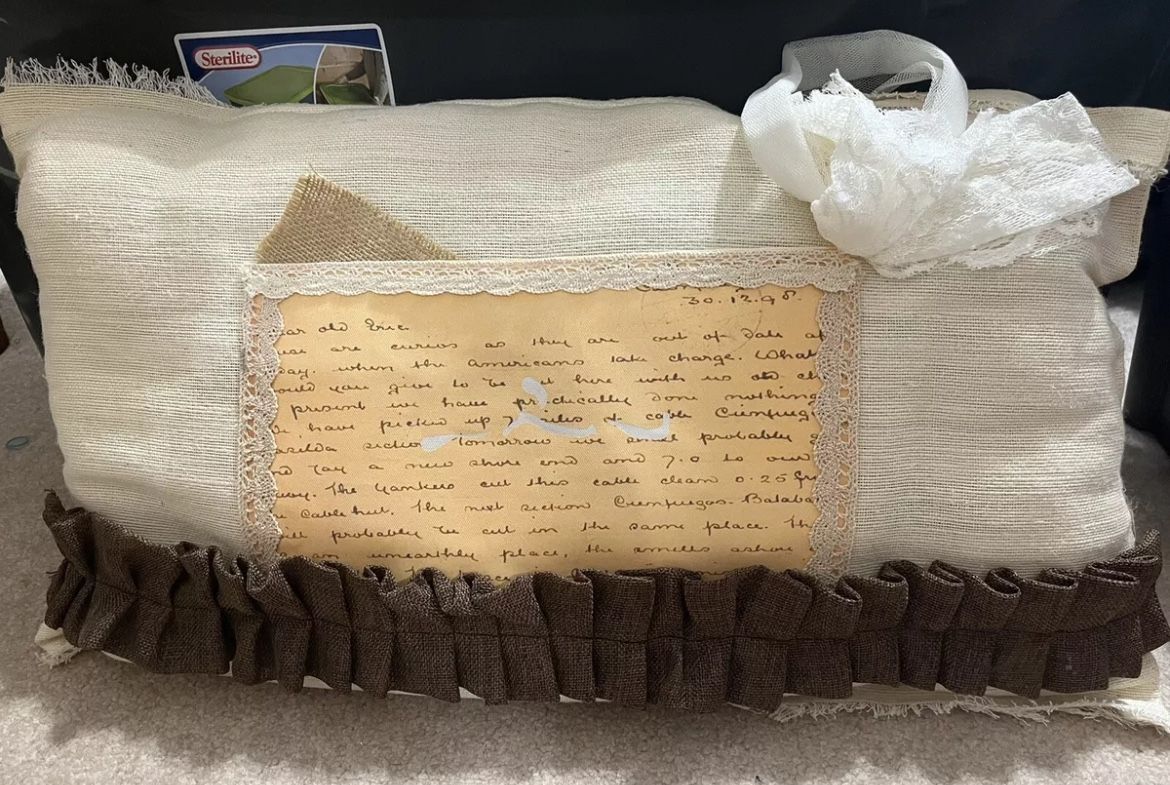 Sterilite®
30.12.98.
ar old Eric.
are curios as they are out of date a
day. when the Americans take charge. What
ould you give to be here with us
present we have practically done nothing
have picked up 7 miles of cable Cienfueg
section Tomorrow we shall probably
nd lay a new shore end and 7.0 to our
The Yankees cut this cable clean 0.25
Cable hut. The next section Cienfuegos-Bataba
ill probably be cut in the same place. Th
an unearthly place, the smells ashore